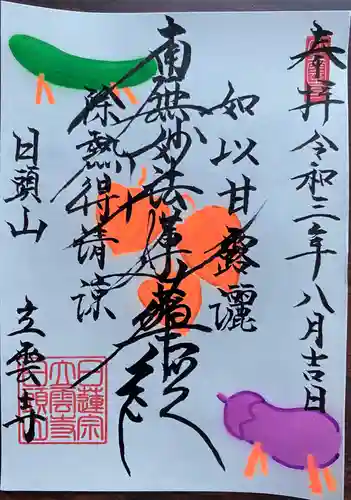 奉拝
令和三年八月吉日
如以甘露灑
南無妙法蓮華経
除熱得清涼
日頭山
立雲寺
日蓮宗
立雲寺
日頭山